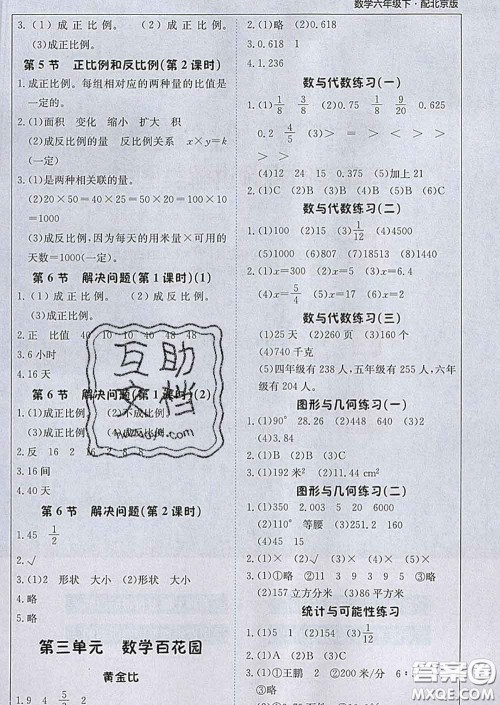 数学六年级下·配北京版
2.(1)成正比例。 (2)成正比例。
(3)成正比例。
第5节 正比例和反比例(第2课时)
1.成正比例。每组相对应的两种量的比值是
一定的。
2.(1)面积 变化 缩小 扩大 积
(2)成反比例的量 反比例关系 x×y=k
(一定)
3.(1)是两种相关联的量。
(2)20×50=40×25=50×20=100×10
=1000
(3)成反比例,因为每天的用米量×用的
天数=1000(一定)。
第6节 解决问题(第1课时)(1)
1.(1)成正比例。 (2)成正比例。
(3)成正比例。
2.正 比值 40 10 40 48 48
3.6小时
4.16天
第6节 解决问题(第1课时)(2)
1.(1)成正比例。 (2)不成比例。
(3)成反比例。
2.反 16 2 16
3.16间
4.40天
第6节 解决问题(第2课时)
1.45 1/2
2.√
3.(1)2 形状 大小 (2)形状 大小
4.略
5.略
第三单元 数学百花园
黄金比
1.9 4 5/2 2
2.(1)略 (2)0.618
3.0.618 1
4.1.236
数与代数练习(一)
1.(1)1/8 3/8 (2)0.75 9/20 0.625
0.2 4/5 (3)< > < > > >
(4)12 24 15 0.375 (5)加上21
2.(1)C (2)B (3)C (4)B (5)A
数与代数练习(二)
1.(1)略 (2)15 (3)1/12 (4)4500
(5)1000 (6)807 (7)18513 (8)1440
2.(1)x=300 (2)x=5 (3)x=6.4
(4)x=5/4 (5)x=2 (6)x=17.2
数与代数练习(三)
(1)25天 (2)260页 (3)160个
(4)740千克
(5)四年级有238人,五年级有255人,六年
级有204人。
图形与几何练习(一)
1.(1)90° 28.26 (2)448 (3)48
(4)84
2.(1)B (2)C (3)A (4)B (5)B
3.(1)192平方米 (2)略 (3)11.44 cm²
图形与几何练习(二)
1.(1)350 2.003 5 20 6000
(2)110° 等腰 (3)31.4 (4)27
2.(1)× (2)√ (3)√ (4)√ (5)×
3.(1)①略 ②略 ③略 ④略
(2)54平方分米 (3)86平方厘米
统计与可能性练习
1.(1)5 (2)4.5 154 (3)1/12
2.(1)A (2)C (3)B (4)C
3.(1)①王鹏 2 ②200米/分 6:
③略
互助
文档
答案圈
MXQE.COM